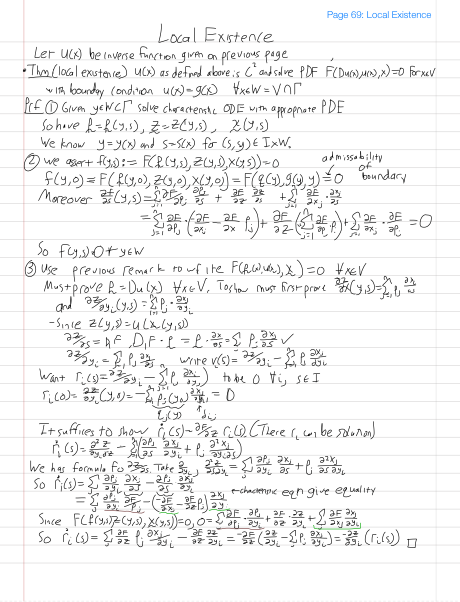 Page 69: Local Existence
Local Existence
Let u(x) be inverse function given on previous page
• Thm (local existence) u(x) as defined above is C² and solve PDF F(Du(x),u(x),x)=0 for x∈V
with boundary condition u(x)=g(x) ∀x∈W=V∩Γ
Pf ① Given y∈W⊂Γ solve characteristic ODE with appropriate PDE
So have p=p(y,s), z=z(y,s), x(y,s)
We know y=y(x) and s=s(x) for (s,y)∈I×W.
② we assert f(y,s):=F(p(y,s),z(y,s),x(y,s))=0
f(y,0)=F(p(y,0),z(y,0),x(y,0))=F(q(y),g(y),y)=0
admissability of boundary
Moreover ∂f/∂s(y,s)=Σ ∂F/∂pj ∂pj/∂s + ∂F/∂z ∂z/∂s + Σ ∂F/∂xj ∂xj/∂s
=Σ ∂F/∂pj (-∂F/∂xj - ∂F/∂z pj) + ∂F/∂z (Σ ∂F/∂pj pj) + Σ ∂F/∂xj · ∂F/∂pj =0
So f(y,s)=0 ∀y∈W
③ Use previous remark to write F(p(x),u(x),x)=0 ∀x∈V
Must prove p=Du(x) ∀x∈V. To show must first prove ∂z/∂s(y,s)=Σ pj ∂xj/∂s
and ∂z/∂yi(y,s)=Σ pj · ∂xj/∂yi
-Since z(y,s)=u(x(y,s))
∂z/∂s = p · ∂x/∂s = Σ pj ∂xj/∂s ✓
∂z/∂yi = Σ pj ∂xj/∂yi write ri(s)=∂z/∂yi - Σ pj ∂xj/∂yi
Want ri(s)=∂z/∂yi - Σ pj ∂xj/∂yi to be 0 ∀i, s∈I
ri(0)=∂z/∂yi(y,0) - Σ pj(y,0) ∂xj/∂yi = 0
qj(y) δij
It suffices to show ṙi(s)=-∂F/∂z ri(s) (There ri can be solution)
ṙi(s)=∂²z/∂yi∂s - Σ ∂pj/∂s ∂xj/∂yi + pj ∂²xj/∂yi∂s
We has formula for ∂z/∂s. Take ∂/∂yi, ∂²z/∂s∂yi = Σ ∂pj/∂yi ∂xj/∂s + pj ∂²xj/∂s∂yi
So ṙi(s)=Σ ∂pj/∂yi ∂xj/∂s - ∂pj/∂s ∂xj/∂yi
=Σ ∂pj/∂yi ∂F/∂pj - (-∂F/∂xj - ∂F/∂z pj) ∂xj/∂yi ←characteristic eqn give equality
Since F(p(y,s),z(y,s),x(y,s))=0, 0=Σ ∂F/∂pj · ∂pj/∂yi + ∂F/∂z · ∂z/∂yi + Σ ∂F/∂xj ∂xj/∂yi
So ṙi(s)=Σ ∂F/∂z pj ∂xj/∂yi - ∂F/∂z ∂z/∂yi = -∂F/∂z (∂z/∂yi - Σ pj ∂xj/∂yi) = -∂F/∂z (ri(s)) □